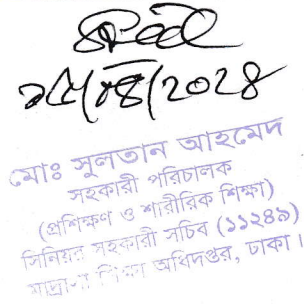 ২৫/০৪/2024
মোঃ সুলতান আহমেদ
সহকারী পরিচালক
(প্রশিক্ষণ ও শারীরিক শিক্ষা)
সিনিয়র সহকারী সচিব (১১২৪৯)
মাদ্রাসা শিক্ষা অধিদপ্তর, ঢাকা।